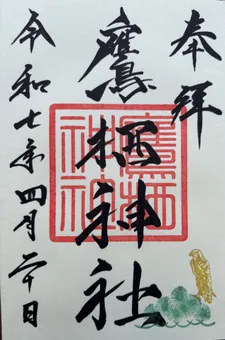 奉拝
鷹栖神社
鷹栖神社
令和七年四月二十日